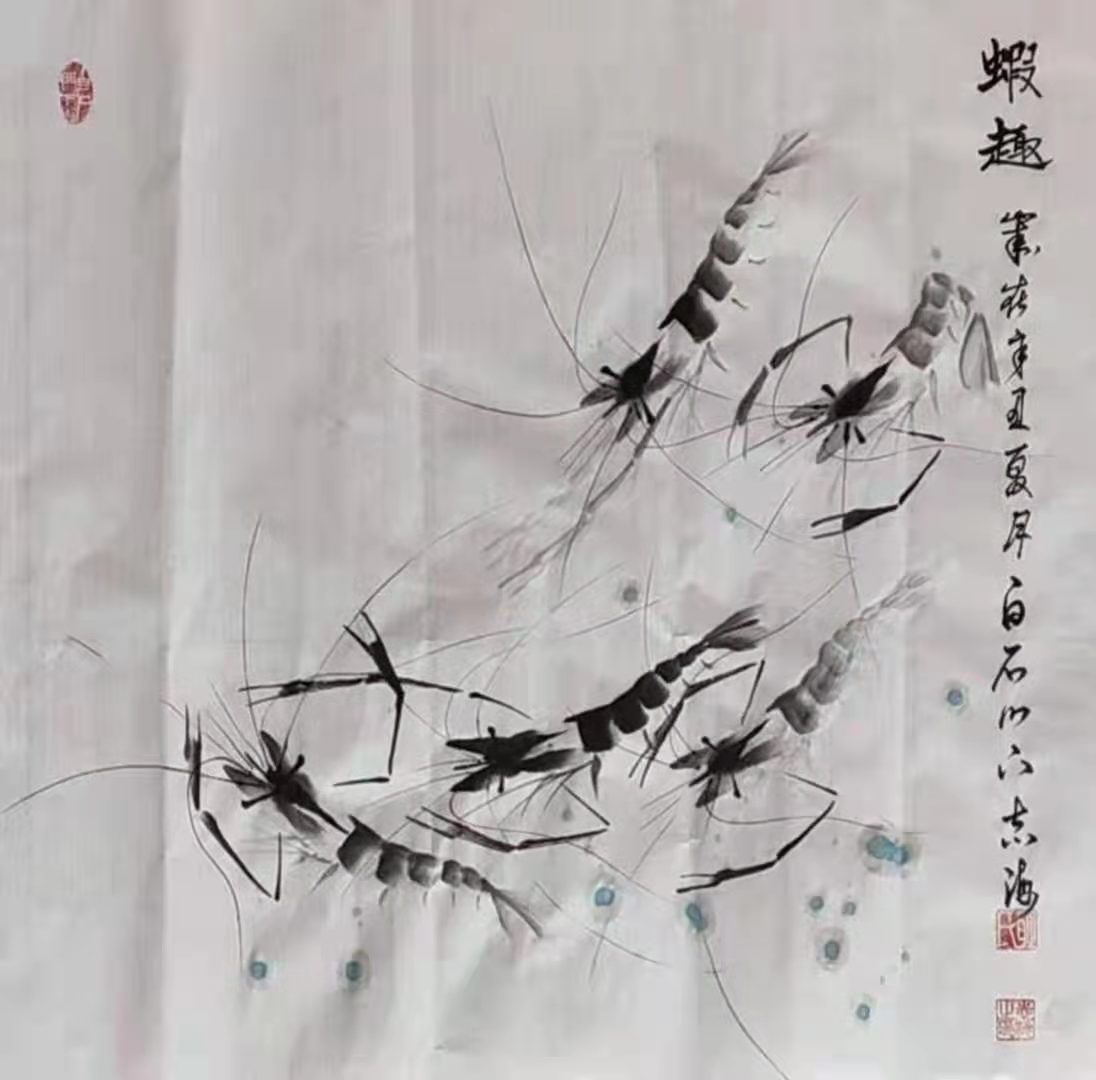 蝦趣 歲在辛丑夏月白石門下志海